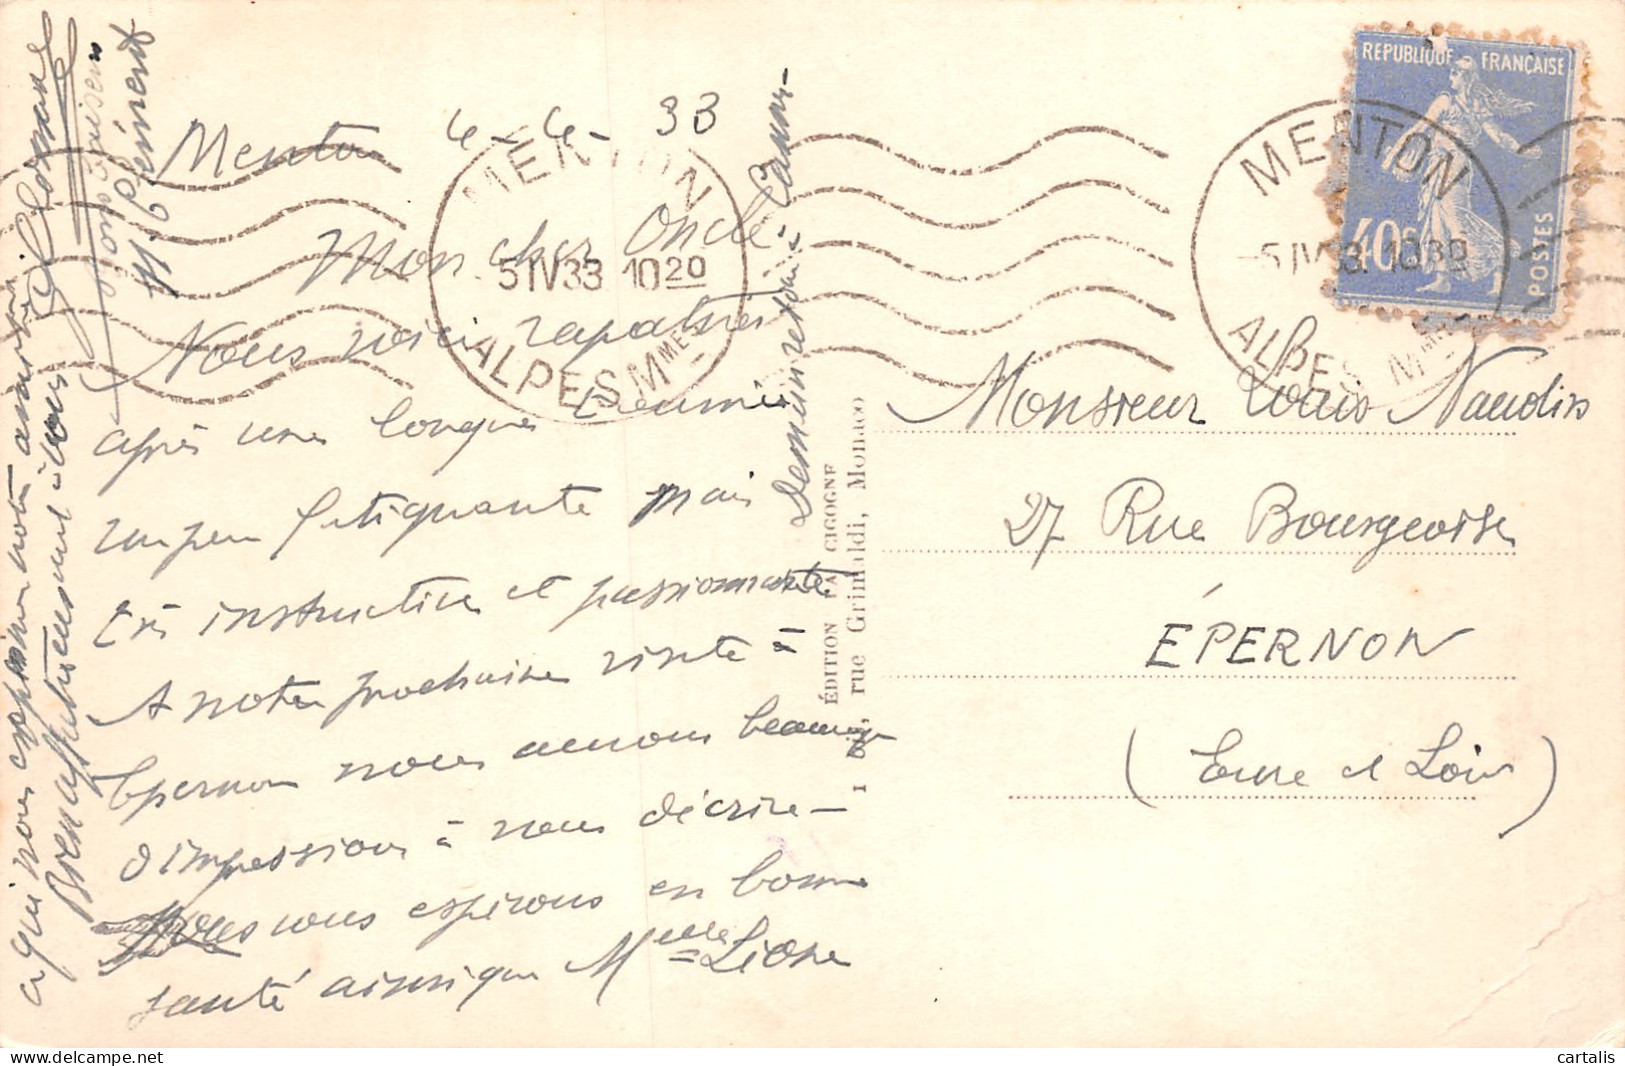 Menton 4-4-33
Mon cher Oncle
Nous voici rapatriés
après une longue tournée
un peu fatigante mais
très instructive et passionnante
A notre prochaine visite à
Epernon nous aurons beaucoup
d'impressions à vous décrire -
Nous vous espérons en bonne
santé ainsi que Melle Léone
a qui nous exprimons notre amitié
Bien affectueusement à vous
M Clément
Demain retour à Cannes -
MENTON
5 IV 33 10 20
ALPES Mmes
ÉDITION LA CIGOGNE
1 bis, rue Grimaldi, Monaco
REPUBLIQUE FRANÇAISE
40c
POSTES
MENTON
5 IV 33 10 30
ALPES Mmes
Monsieur Louis Naudin
27 Rue Bourgeoise
ÉPERNON
(Eure et Loir)
cartalis